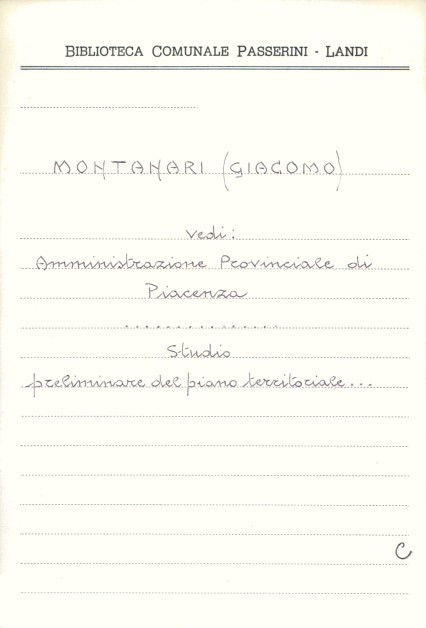 BIBLIOTECA COMUNALE PASSERINI - LANDI
MONTANARI (GIACOMO)
vedi:
Amministrazione Provinciale di
Piacenza
...............
Studio
preliminare del piano territoriale...
C